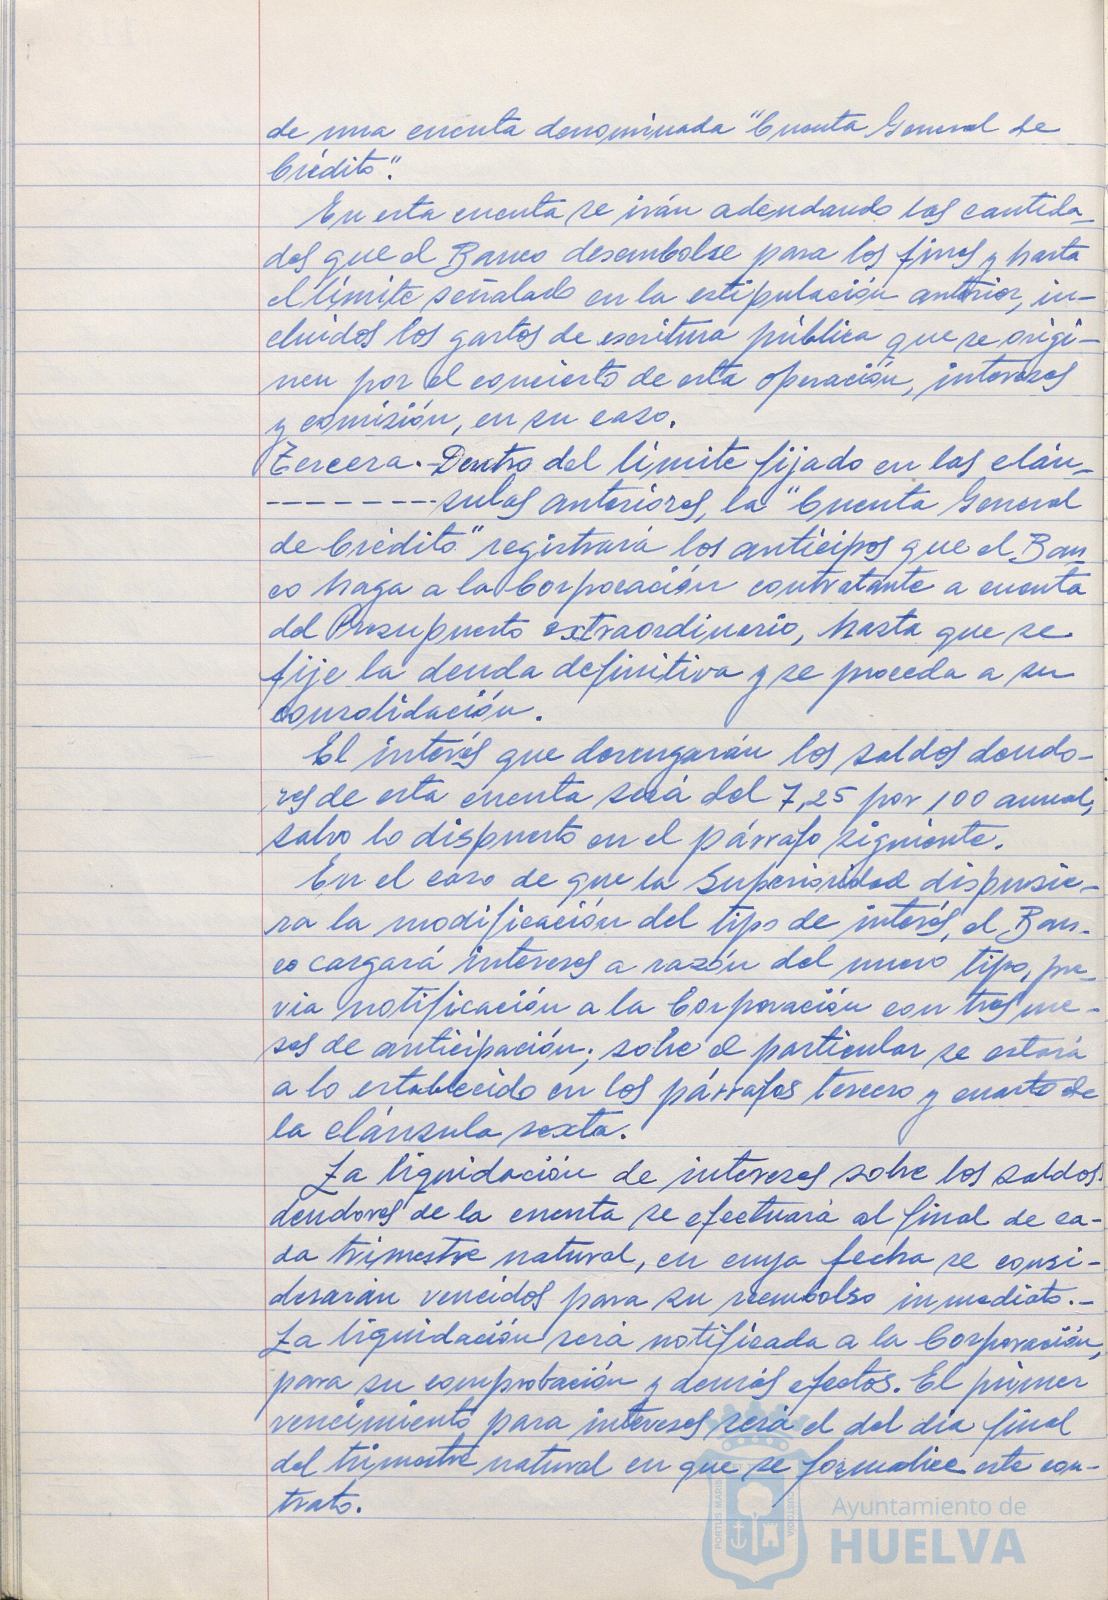 de una cuenta denominada "Cuenta General de
Crédito".
En esta cuenta se irán adeudando las cantida-
des que el Banco desembolse para los fines y hasta
el límite señalado en la estipulación anterior, in-
cluidos los gastos de escritura pública que se origi-
nen por el concierto de esta operación, intereses
y comisión, en su caso.
Tercera.-Dentro del límite fijado en las cláu-
--------sulas anteriores, la "Cuenta General
de Crédito" registrará los anticipos que el Ban-
co haga a la Corporación contratante a cuenta
del Presupuesto extraordinario, hasta que se
fije la deuda definitiva y se proceda a su
consolidación.
El interés que devengarán los saldos deudo-
res de esta cuenta será del 7,25 por 100 anual,
salvo lo dispuesto en el párrafo siguiente.
En el caso de que la Superioridad dispusie-
ra la modificación del tipo de interés, el Ban-
co cargará intereses a razón del nuevo tipo, pre-
via notificación a la Corporación con tres me-
ses de anticipación; sobre el particular se estará
a lo establecido en los párrafos tercero y cuarto de
la cláusula sexta.
La liquidación de intereses sobre los saldos
deudores de la cuenta se efectuará al final de ca-
da trimestre natural, en cuya fecha se consi-
derarán vencidos para su reembolso inmediato.-
La liquidación será notificada a la Corporación,
para su comprobación y demás efectos. El primer
vencimiento para intereses será el del día final
del trimestre natural en que se formalice este con-
trato.
PORTUS MARIS
CUSTODIA
Ayuntamiento de
HUELVA